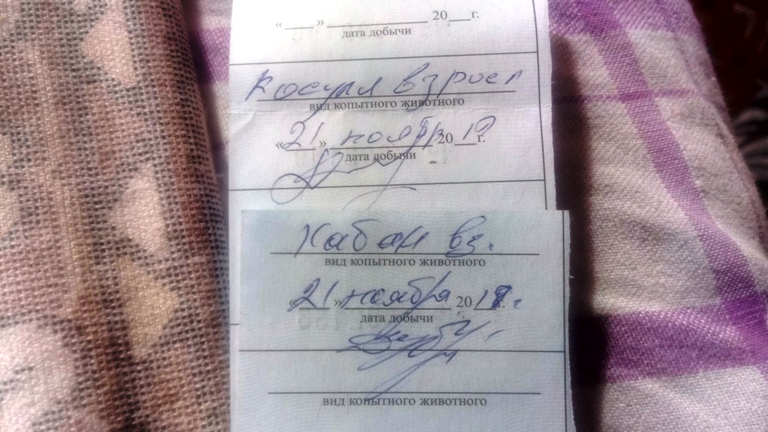 « ___ » ____________ 20 __ г.
дата добычи
Косуля взросл
вид копытного животного
«21» ноября 20 г.
дата добычи
Кабан вз.
вид копытного животного
«21» ноября 201 г
дата добычи
вид копытного животного